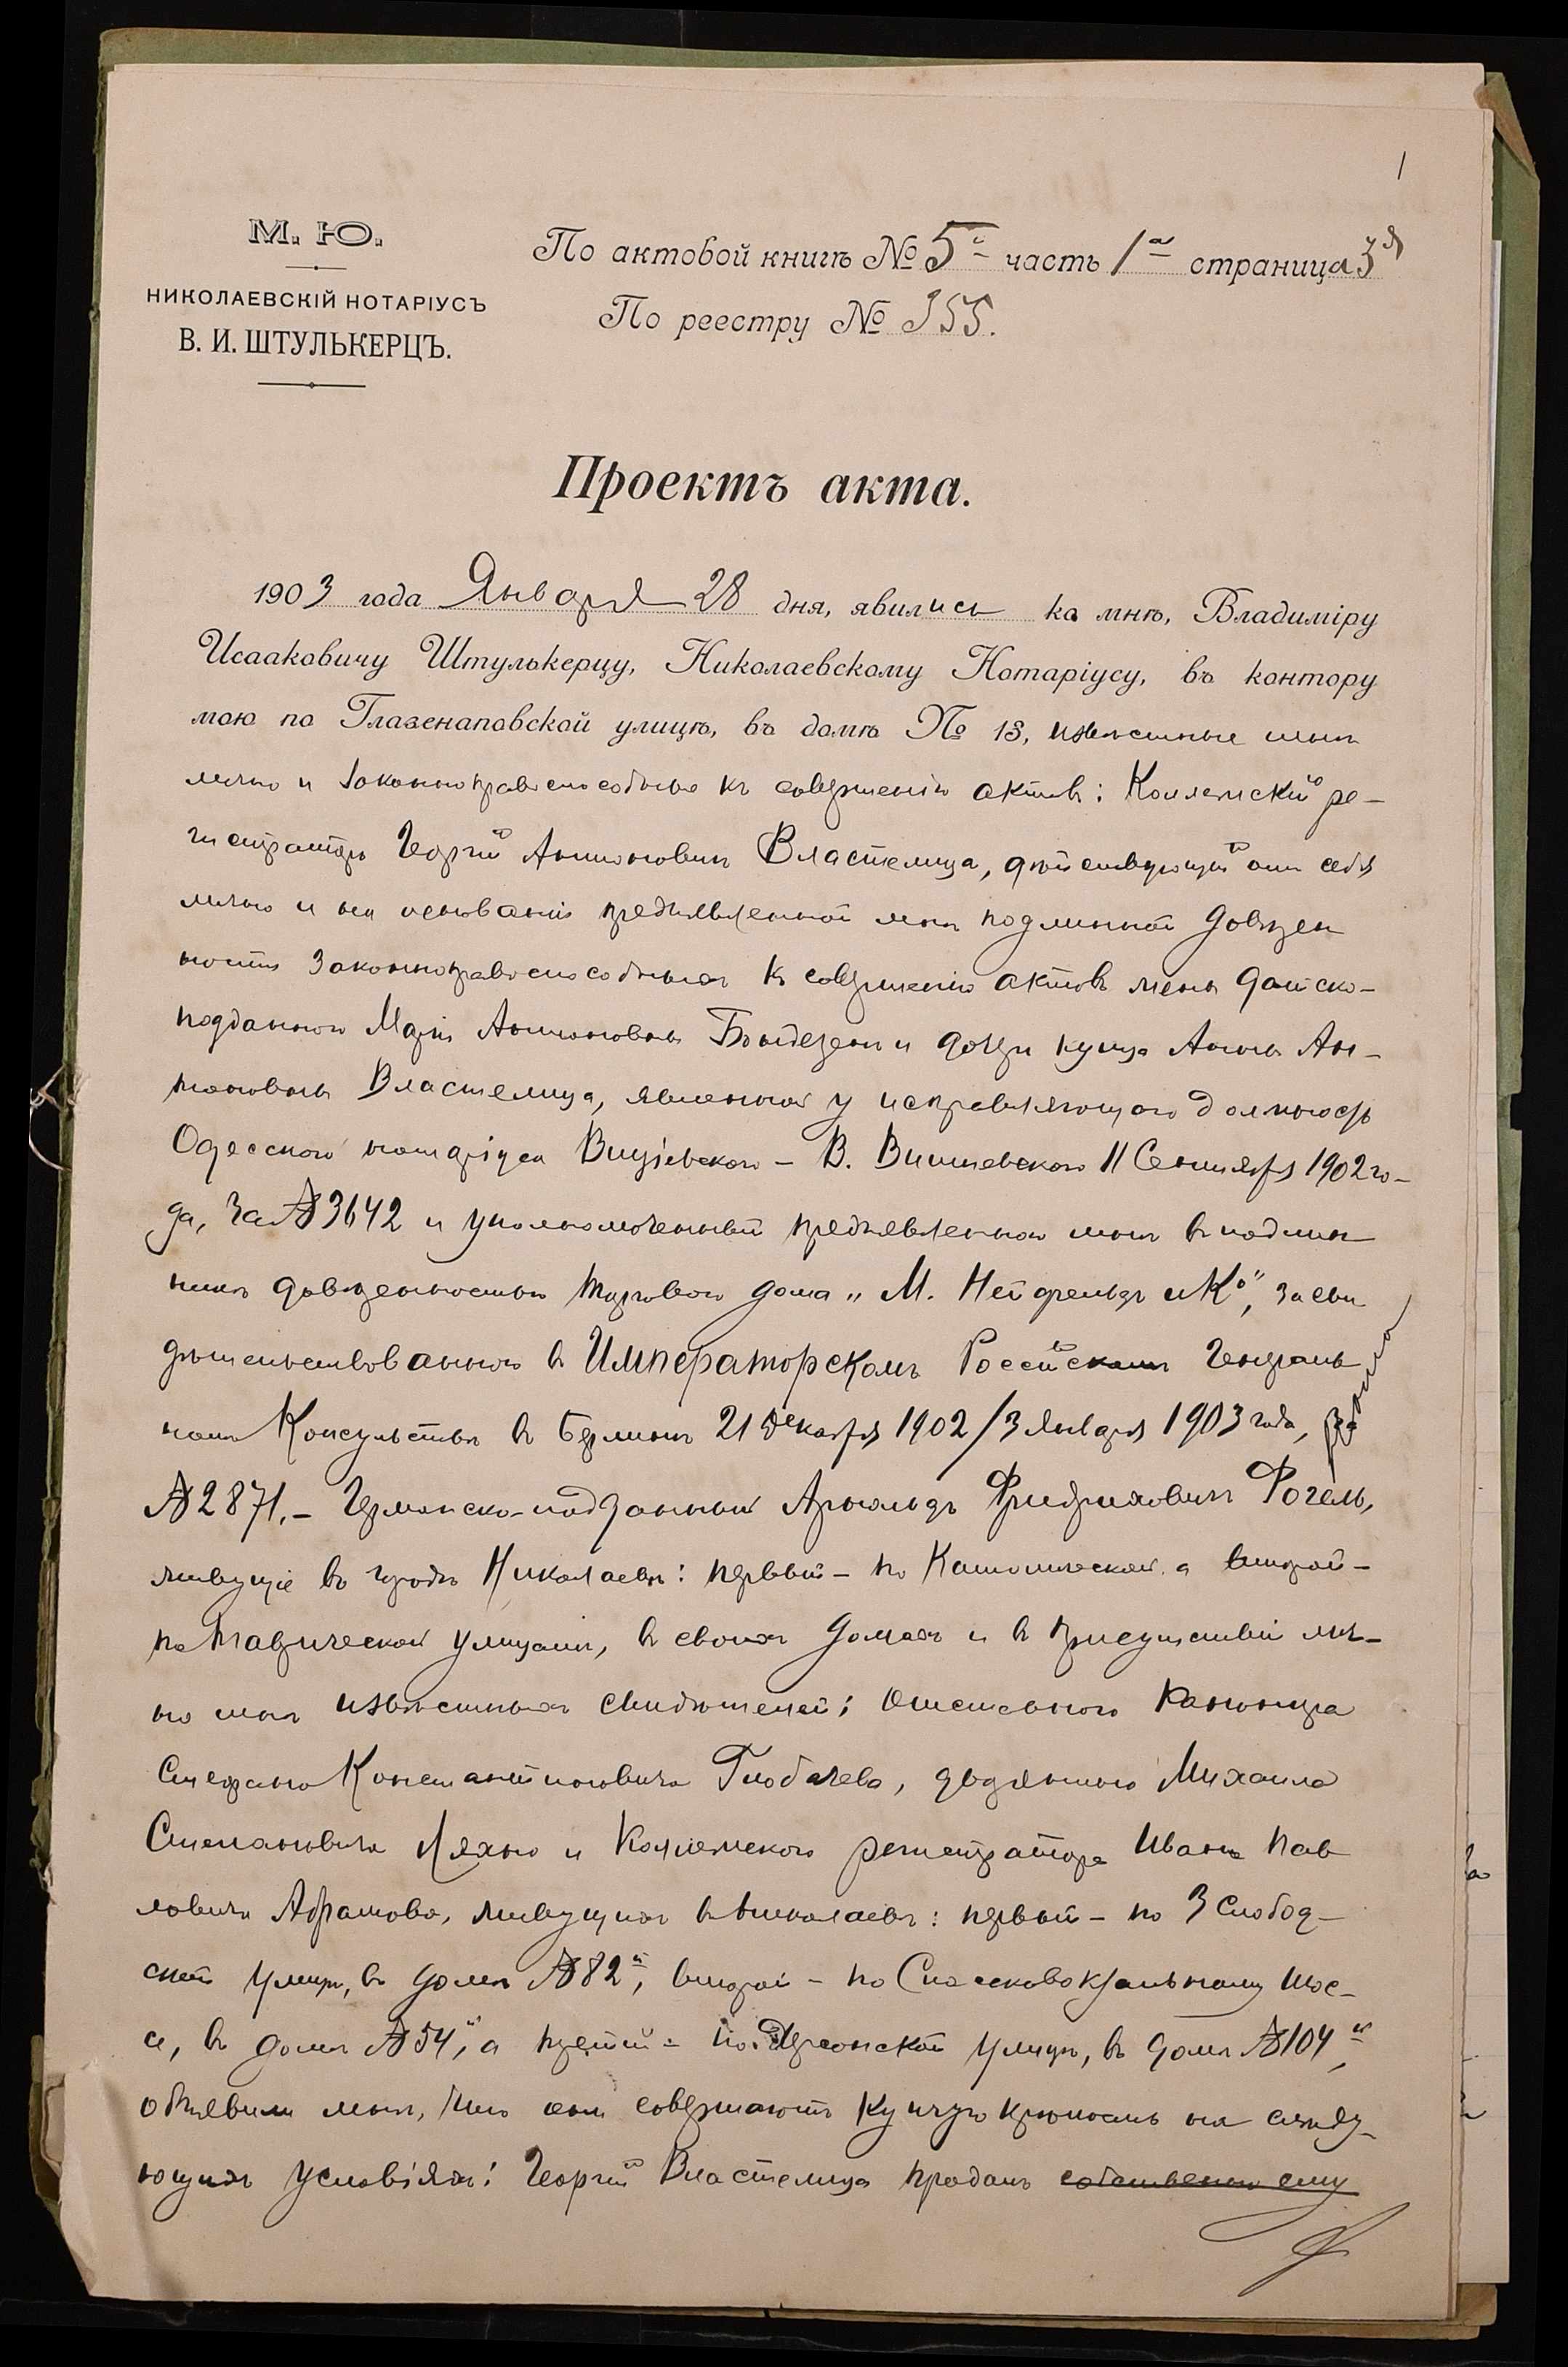 1
М. Ю.
НИКОЛАЕВСКІЙ НОТАРІУСЪ
В. И. ШТУЛЬКЕРЦЪ.
По актовой книгѣ № 5й часть 1ая страница 3я
По реестру № 355.
Проектъ акта.
1903 года Января 28 дня, явились ко мнѣ, Владиміру
Исааковичу Штулькерцу, Николаевскому Нотаріусу, въ контору
мою по Глазенаповской улицѣ, въ домѣ № 13, извѣстные мнѣ
лично и законноправоспособные къ совершенію актовъ: Коллежскій ре-
гистраторъ Георгій Антоновичъ Властелица, дѣйствующій отъ себя
лично и на основаніи предъявленной мнѣ подлинной довѣрен
ности законноправоспособныхъ къ совершенію актовъ жены датско-
подданного Маріи Антоновны и дочери купца Анны Ан-
тоновны Властелица, явленной у исправляющаго должность
Одесского нотаріуса - В. Вишневского 11 Сентября 1902 го-
да, за № 3642 и уполномоченный предъявленною мнѣ въ подлин
никѣ довѣренностью торгового дома „М. Нейфельдъ и Ко", засви
дѣтельствованною въ Императорскомъ Россійскомъ Генераль
номъ Консульствѣ въ Берлинѣ 21 Декабря 1902/3 Января 1903 года, за
№ 2871,- Германско-подданный Арнольдъ Фридриховичъ Фогель,
живущіе въ городѣ Николаевѣ: первый - по Католической, а второй -
по Таврической улицамъ, въ своихъ домахъ и въ присутствіи лич-
но мнѣ извѣстныхъ свидѣтелей: отставного канонира
Стефана Константиновича Глобачева, дворянина Михаила
Степановича Ляхно и Коллежского регистратора Ивана Пав
ловича Абрамова, живущихъ въ Николаевѣ: первый - по 3 Слобод-
ской улицѣ, въ домѣ № 82й, второй - по Спассковокзальному шос-
се, въ домѣ № 54й, а третій - по Херсонской улицѣ, въ домѣ № 104й,
объявили мнѣ, что они совершаютъ купчую крѣпость на слѣду-
ющихъ условіяхъ: Георгій Властелица продалъ собственно ему